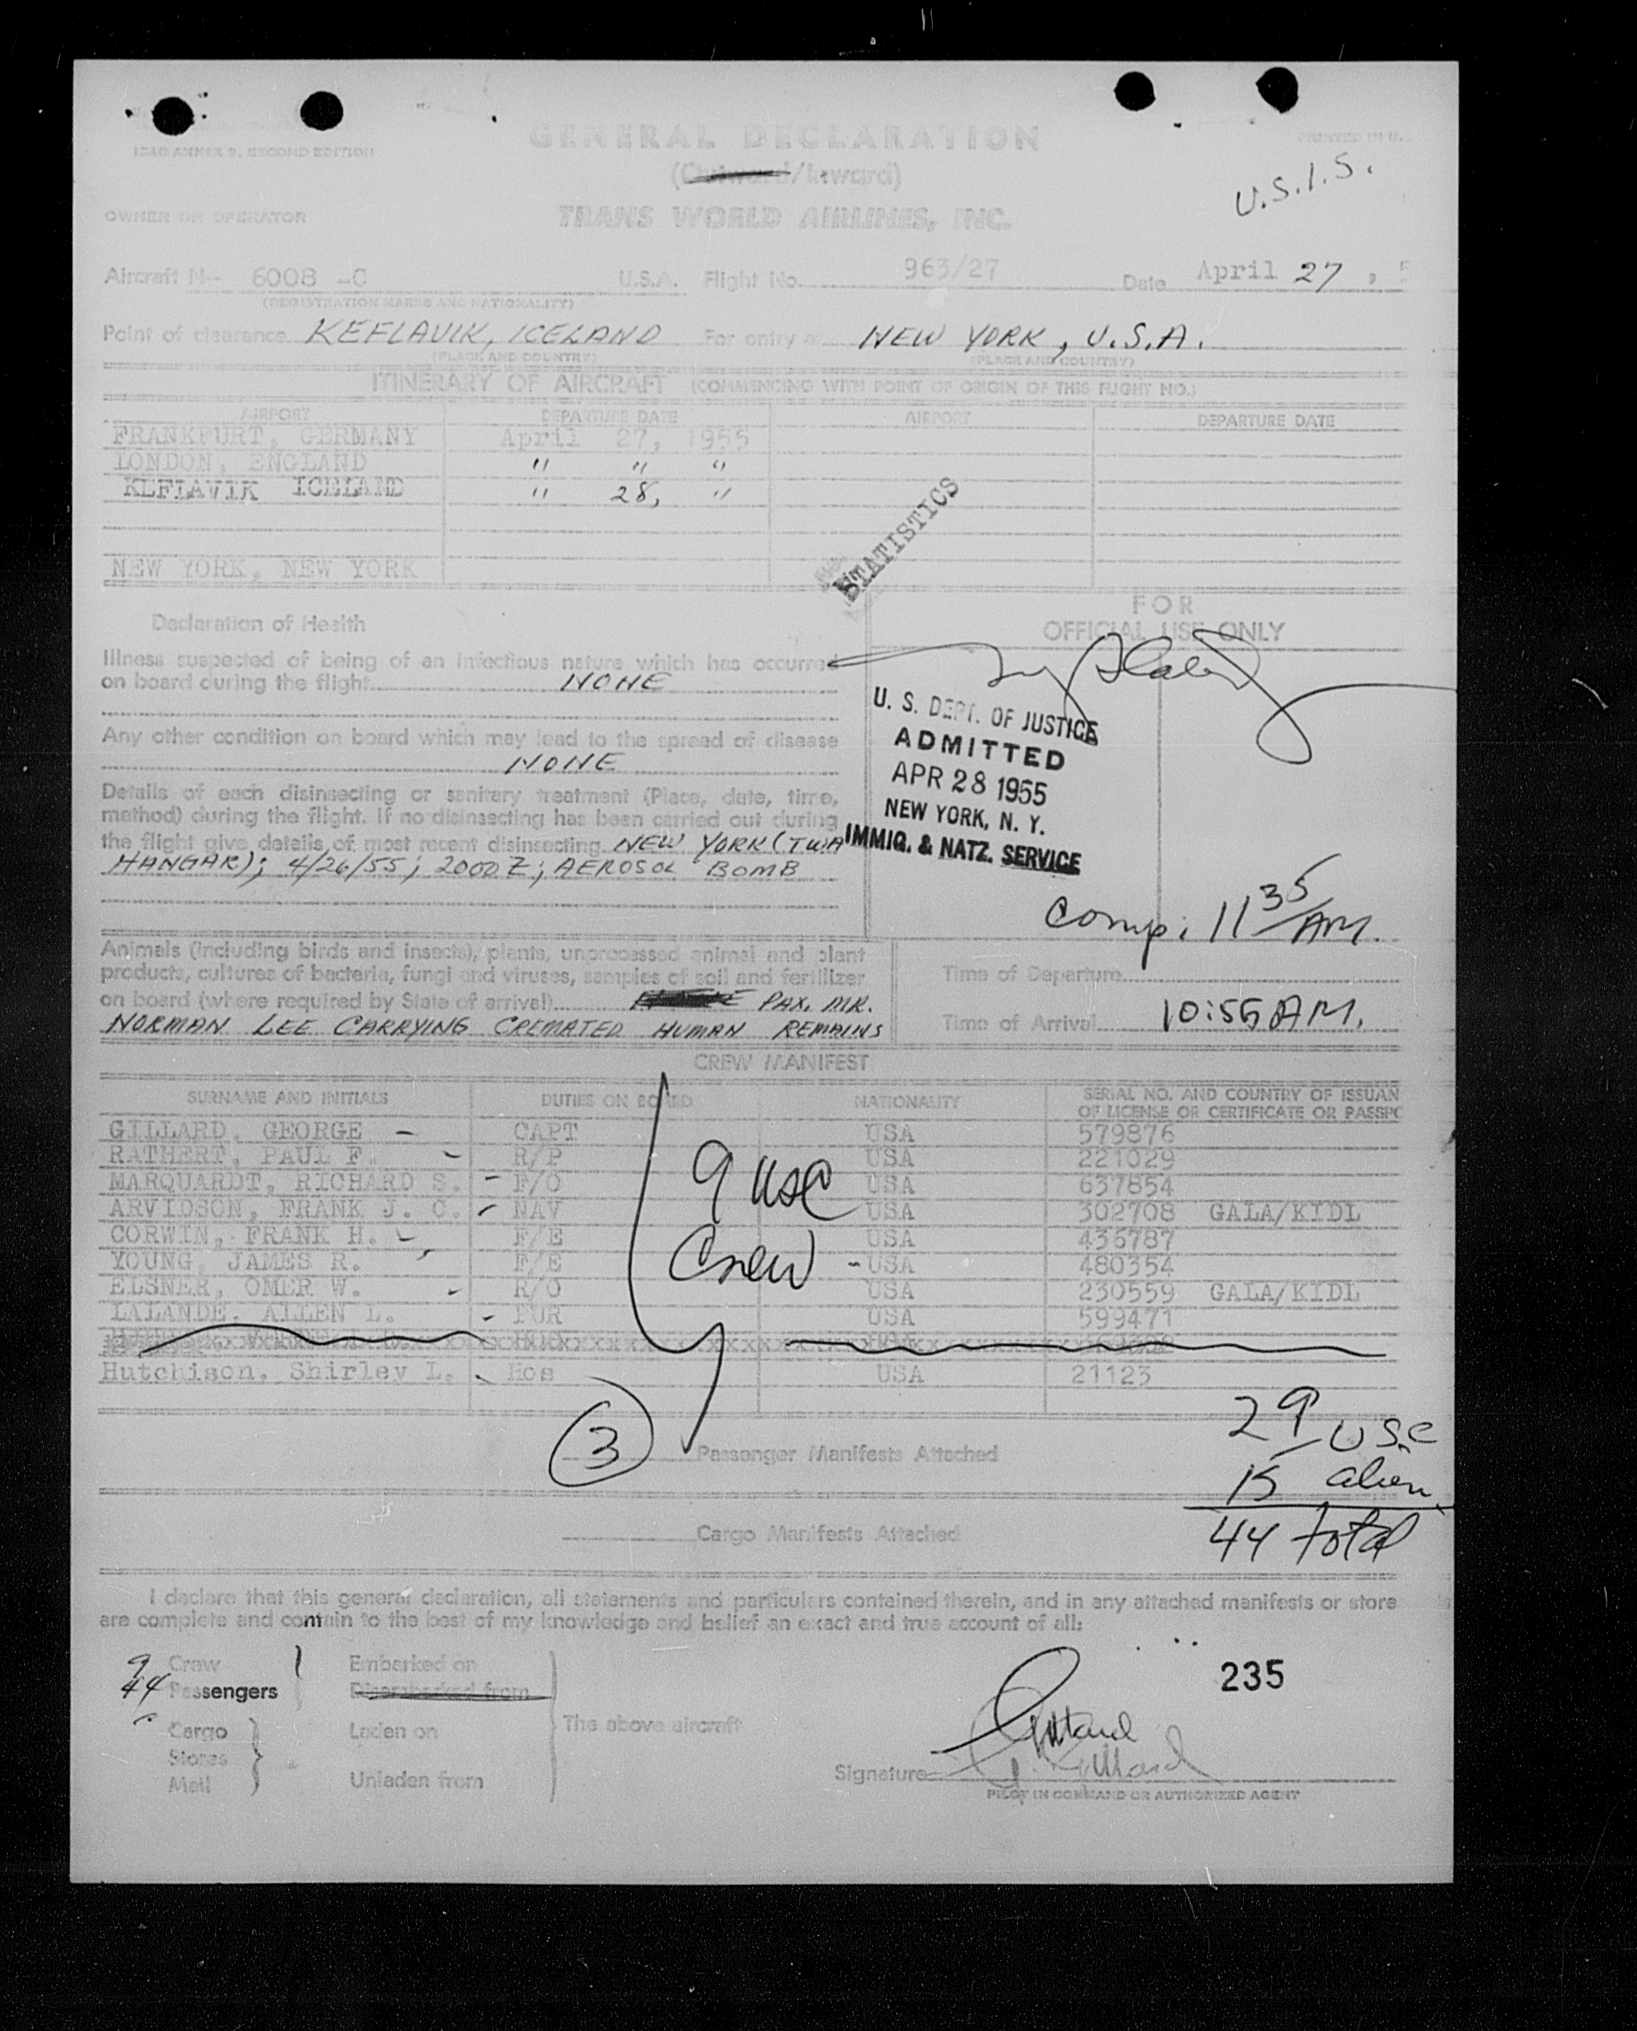 GENERAL DECLARATION
ICAO ANNEX 9, SECOND EDITION
PRINTED IN U.
(Outward/Inward)
U.S.I.S.
OWNER OR OPERATOR
TRANS WORLD AIRLINES, INC.
Aircraft N-- 6008 -C U.S.A. Flight No. 963/27 Date April 27, 5
(REGISTRATION MARKS AND NATIONALITY)
Point of clearance KEFLAVIK, ICELAND For entry NEW YORK, U.S.A.
(PLACE AND COUNTRY) (PLACE AND COUNTRY)
ITINERARY OF AIRCRAFT (COMMENCING WITH POINT OF ORIGIN OF THIS FLIGHT NO.)
AIRPORT DEPARTURE DATE AIRPORT DEPARTURE DATE
FRANKFURT, GERMANY April 27, 1955
LONDON, ENGLAND " " "
KEFLAVIK ICELAND " 28, "
STATISTICS
NEW YORK, NEW YORK
FOR
OFFICIAL USE ONLY
Declaration of Health
Illness suspected of being of an infectious nature which has occurred
on board during the flight NONE
Any other condition on board which may lead to the spread of disease
NONE
Details of each disinsecting or sanitary treatment (Place, date, time,
method) during the flight. If no disinsecting has been carried out during
the flight give details of most recent disinsecting. NEW YORK (TWA
HANGAR); 4/26/55; 2000Z; AEROSOL BOMB
U. S. DEPT. OF JUSTICE
ADMITTED
APR 28 1955
NEW YORK, N. Y.
IMMIG. & NATZ. SERVICE
Comp: 11 35/AM.
Animals (including birds and insects), plants, unprocessed animal and plant
products, cultures of bacteria, fungi and viruses, samples of soil and fertilizer
on board (where required by State of arrival) PAX. MR.
NORMAN LEE CARRYING CREMATED HUMAN REMAINS
Time of Departure
Time of Arrival 10:55 AM.
CREW MANIFEST
SURNAME AND INITIALS DUTIES ON BOARD NATIONALITY SERIAL NO. AND COUNTRY OF ISSUAN
OF LICENSE OR CERTIFICATE OR PASSPO
GILLARD, GEORGE - CAPT USA 579876
RATHERT, PAUL F. R/P USA 221029
MARQUARDT, RICHARD S. F/O USA 637854
ARVIDSON, FRANK J. C. NAV USA 302708 GALA/KIDL
CORWIN, FRANK H. F/E USA 436787
YOUNG, JAMES R. F/E USA 480354
ELSNER, OMER W. R/O USA 230559 GALA/KIDL
LALANDE, ALLEN L. PUR USA 599471
Hutchison, Shirley L. Hos USA 21123
9 USC
Crew
3 Passenger Manifests Attached
29 USC
15 alien
44 total
Cargo Manifests Attached
I declare that this general declaration, all statements and particulars contained therein, and in any attached manifests or store
are complete and contain to the best of my knowledge and belief an exact and true account of all:
9 Crew Embarked on
44 Passengers Disembarked from
Cargo Laden on The above aircraft
Stores
Mail Unladen from
235
Signature G. Gillard
PILOT IN COMMAND OR AUTHORIZED AGENT